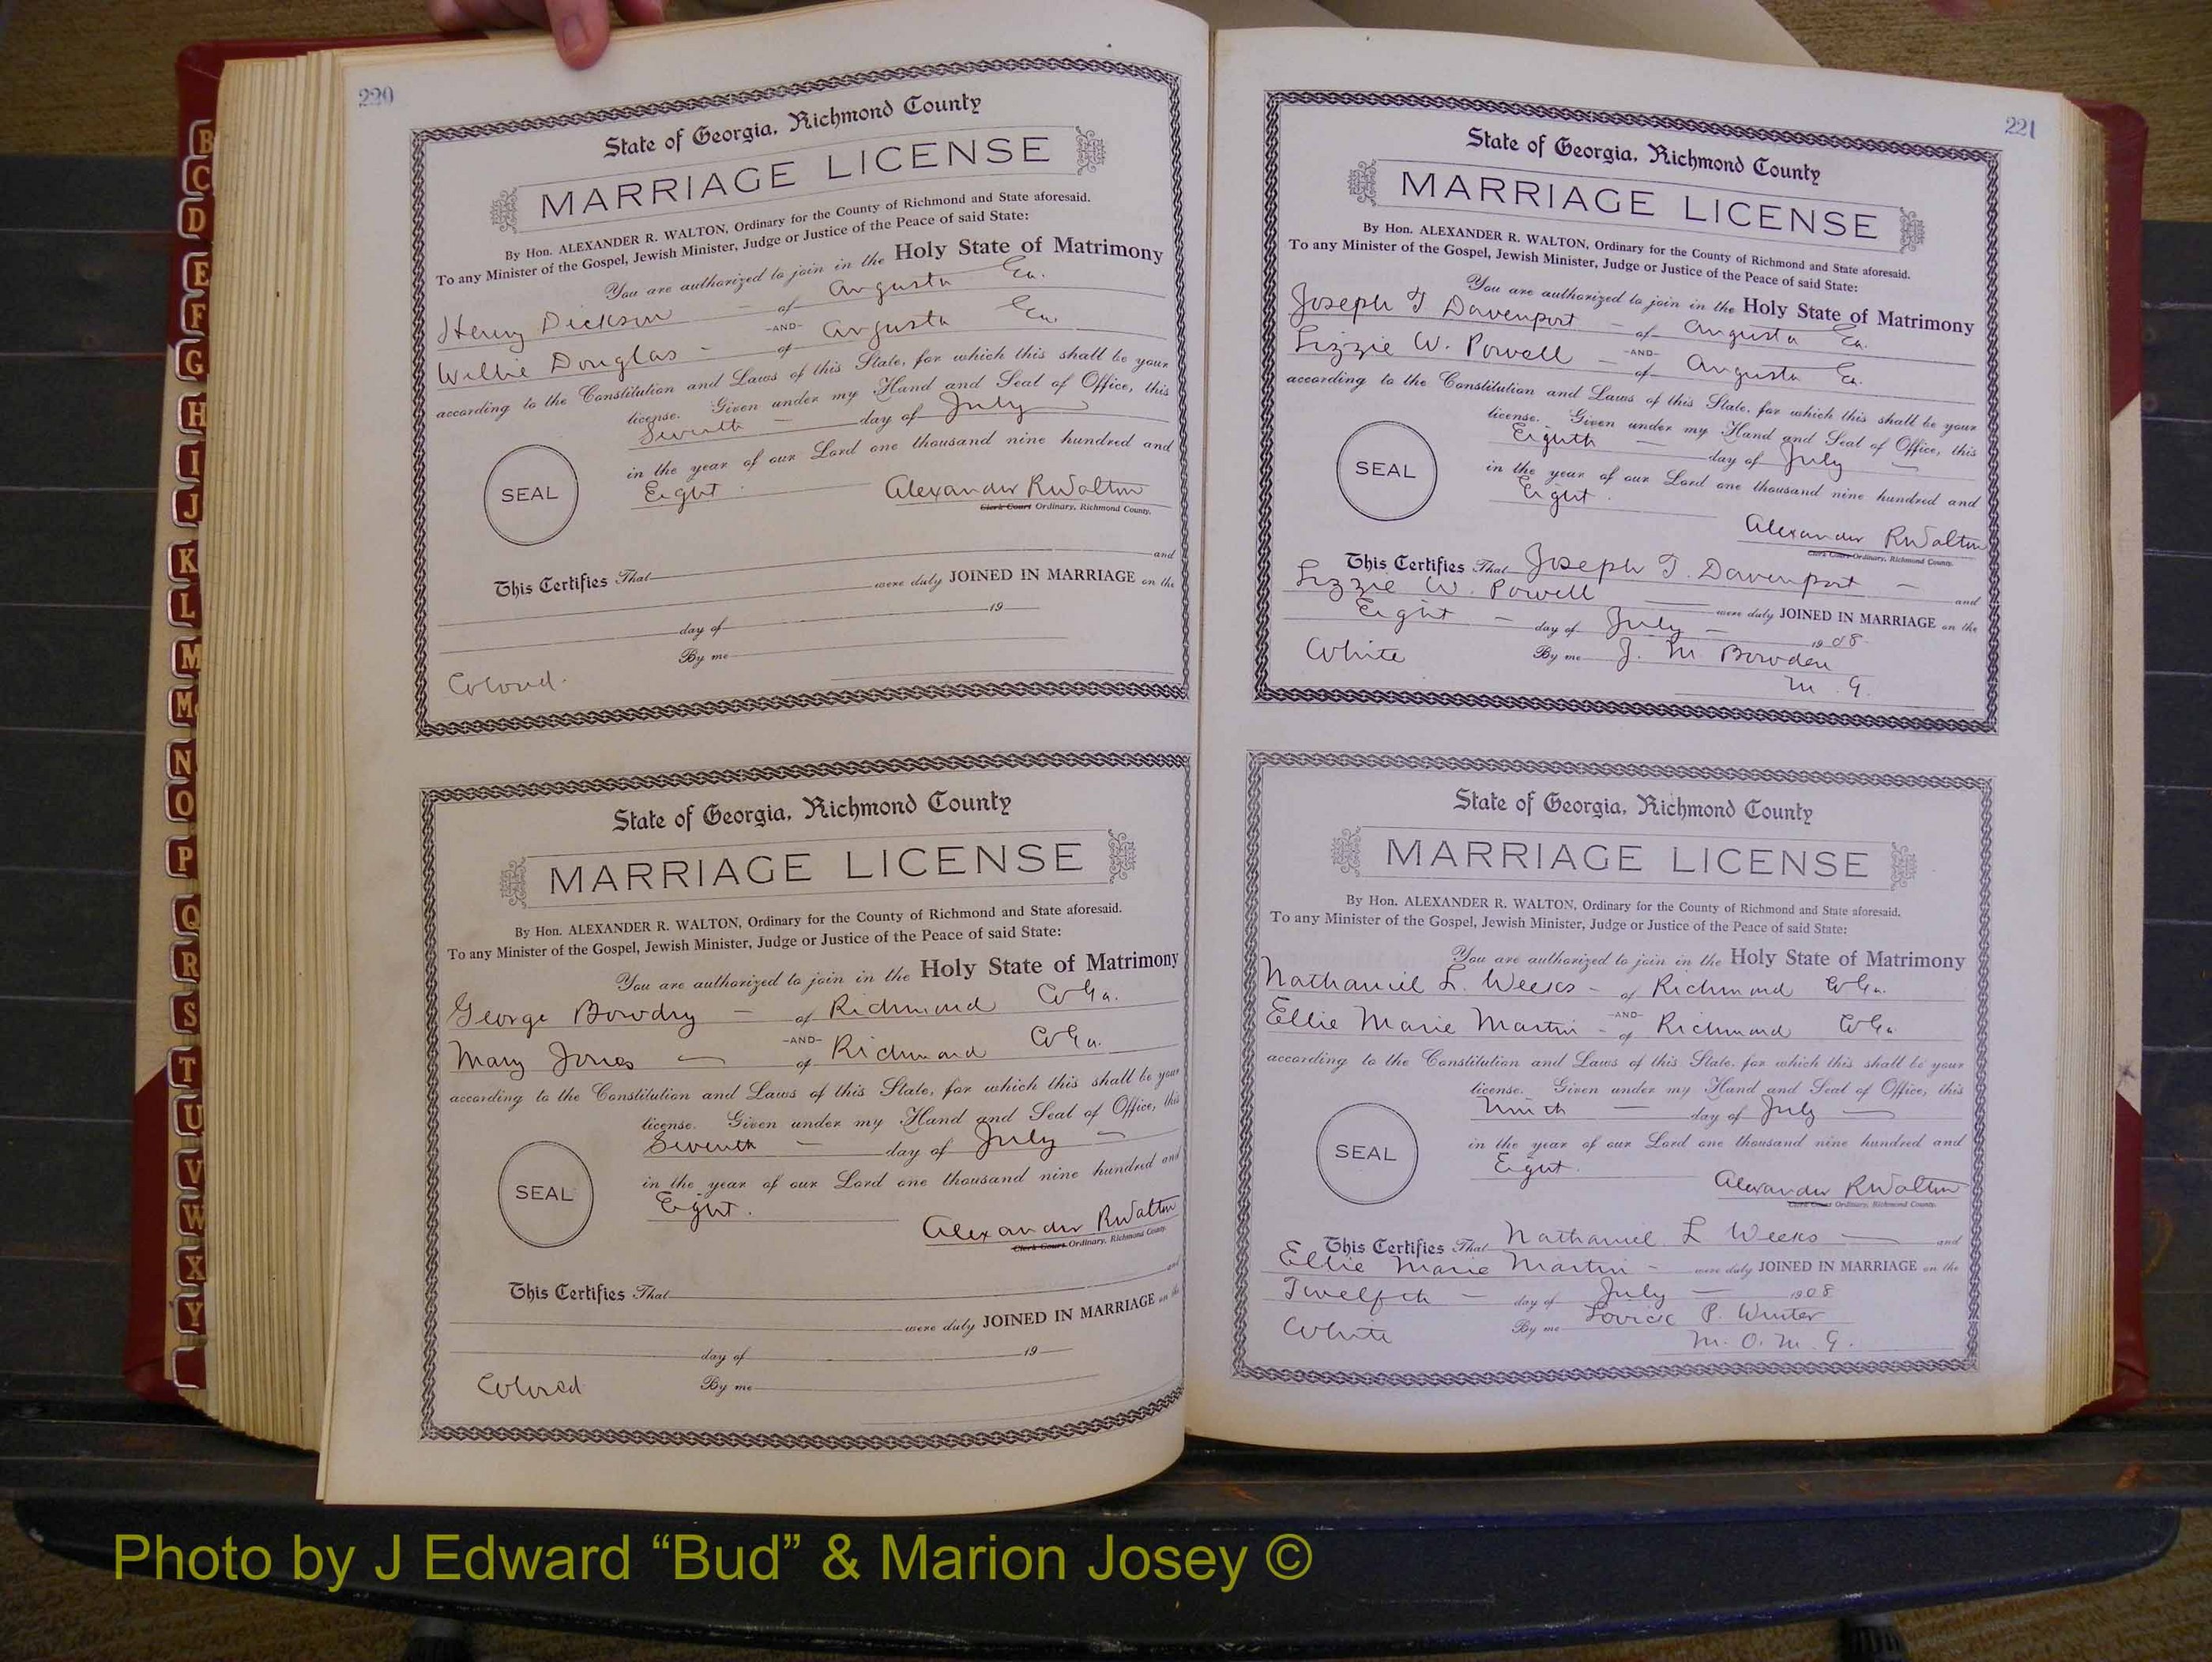 B
C
D
E
F
G
H
I
J
K
L
M
Mc
N
O
P
Q
R
S
T
U
V
W
X
Y
220
State of Georgia, Richmond County
MARRIAGE LICENSE
By Hon. ALEXANDER R. WALTON, Ordinary for the County of Richmond and State aforesaid.
To any Minister of the Gospel, Jewish Minister, Judge or Justice of the Peace of said State:
You are authorized to join in the Holy State of Matrimony
Henry Dickson - of Augusta Ga.
-AND-
Willie Douglas - of Augusta Ga.
according to the Constitution and Laws of this State, for which this shall be your
license. Given under my Hand and Seal of Office, this
Seventh - day of July
SEAL
in the year of our Lord one thousand nine hundred and
Eight. Alexander R Walton
Clerk Court Ordinary, Richmond County.
This Certifies That and
were duly JOINED IN MARRIAGE on the
day of 19
By me
Colored.
State of Georgia, Richmond County
MARRIAGE LICENSE
By Hon. ALEXANDER R. WALTON, Ordinary for the County of Richmond and State aforesaid.
To any Minister of the Gospel, Jewish Minister, Judge or Justice of the Peace of said State:
You are authorized to join in the Holy State of Matrimony
George Bowdry - of Richmond Co Ga.
-AND-
Mary Jones - of Richmond Co Ga.
according to the Constitution and Laws of this State, for which this shall be your
license. Given under my Hand and Seal of Office, this
Seventh - day of July -
SEAL
in the year of our Lord one thousand nine hundred and
Eight.
Alexander R Walton
Clerk Court Ordinary, Richmond County.
This Certifies That and
were duly JOINED IN MARRIAGE on the
day of 19
Colored By me
221
State of Georgia, Richmond County
MARRIAGE LICENSE
By Hon. ALEXANDER R. WALTON, Ordinary for the County of Richmond and State aforesaid.
To any Minister of the Gospel, Jewish Minister, Judge or Justice of the Peace of said State:
You are authorized to join in the Holy State of Matrimony
Joseph T Davenport - of Augusta Ga.
-AND-
Lizzie W. Powell - of Augusta Ga.
according to the Constitution and Laws of this State, for which this shall be your
license. Given under my Hand and Seal of Office, this
Eighth - day of July -
SEAL
in the year of our Lord one thousand nine hundred and
Eight.
Alexander R Walton
Clerk Court Ordinary, Richmond County.
This Certifies That Joseph T. Davenport - and
Lizzie W. Powell were duly JOINED IN MARRIAGE on the
Eight - day of July - 1908
White By me J. M Bowden
M. G.
State of Georgia, Richmond County
MARRIAGE LICENSE
By Hon. ALEXANDER R. WALTON, Ordinary for the County of Richmond and State aforesaid.
To any Minister of the Gospel, Jewish Minister, Judge or Justice of the Peace of said State:
You are authorized to join in the Holy State of Matrimony
Nathaniel L. Weeks - of Richmond Co Ga.
-AND-
Ellie Marie Martin - of Richmond Co Ga
according to the Constitution and Laws of this State, for which this shall be your
license. Given under my Hand and Seal of Office, this
Ninth - day of July -
SEAL
in the year of our Lord one thousand nine hundred and
Eight.
Alexander R Walton
Clerk Court Ordinary, Richmond County.
This Certifies That Nathaniel L Weeks - and
Ellie Marie Martin - were duly JOINED IN MARRIAGE on the
Twelfth - day of July - 1908
White By me Lovick P. Winter
M. O. M. G.
Photo by J Edward “Bud” & Marion Josey ©